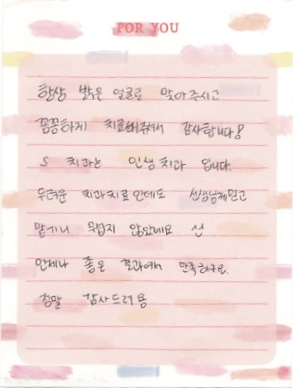 FOR YOU
항상 밝은 얼굴로 맞아주시고
꼼꼼하게 치료해주셔서 감사합니다!
S 치과는 인생치과 입니다.
무서운 치과치료인데도 선생님께믿고
맡기니 무섭지 않았네요
언제나 좋은 결과에 만족하구요.
정말 감사드려용